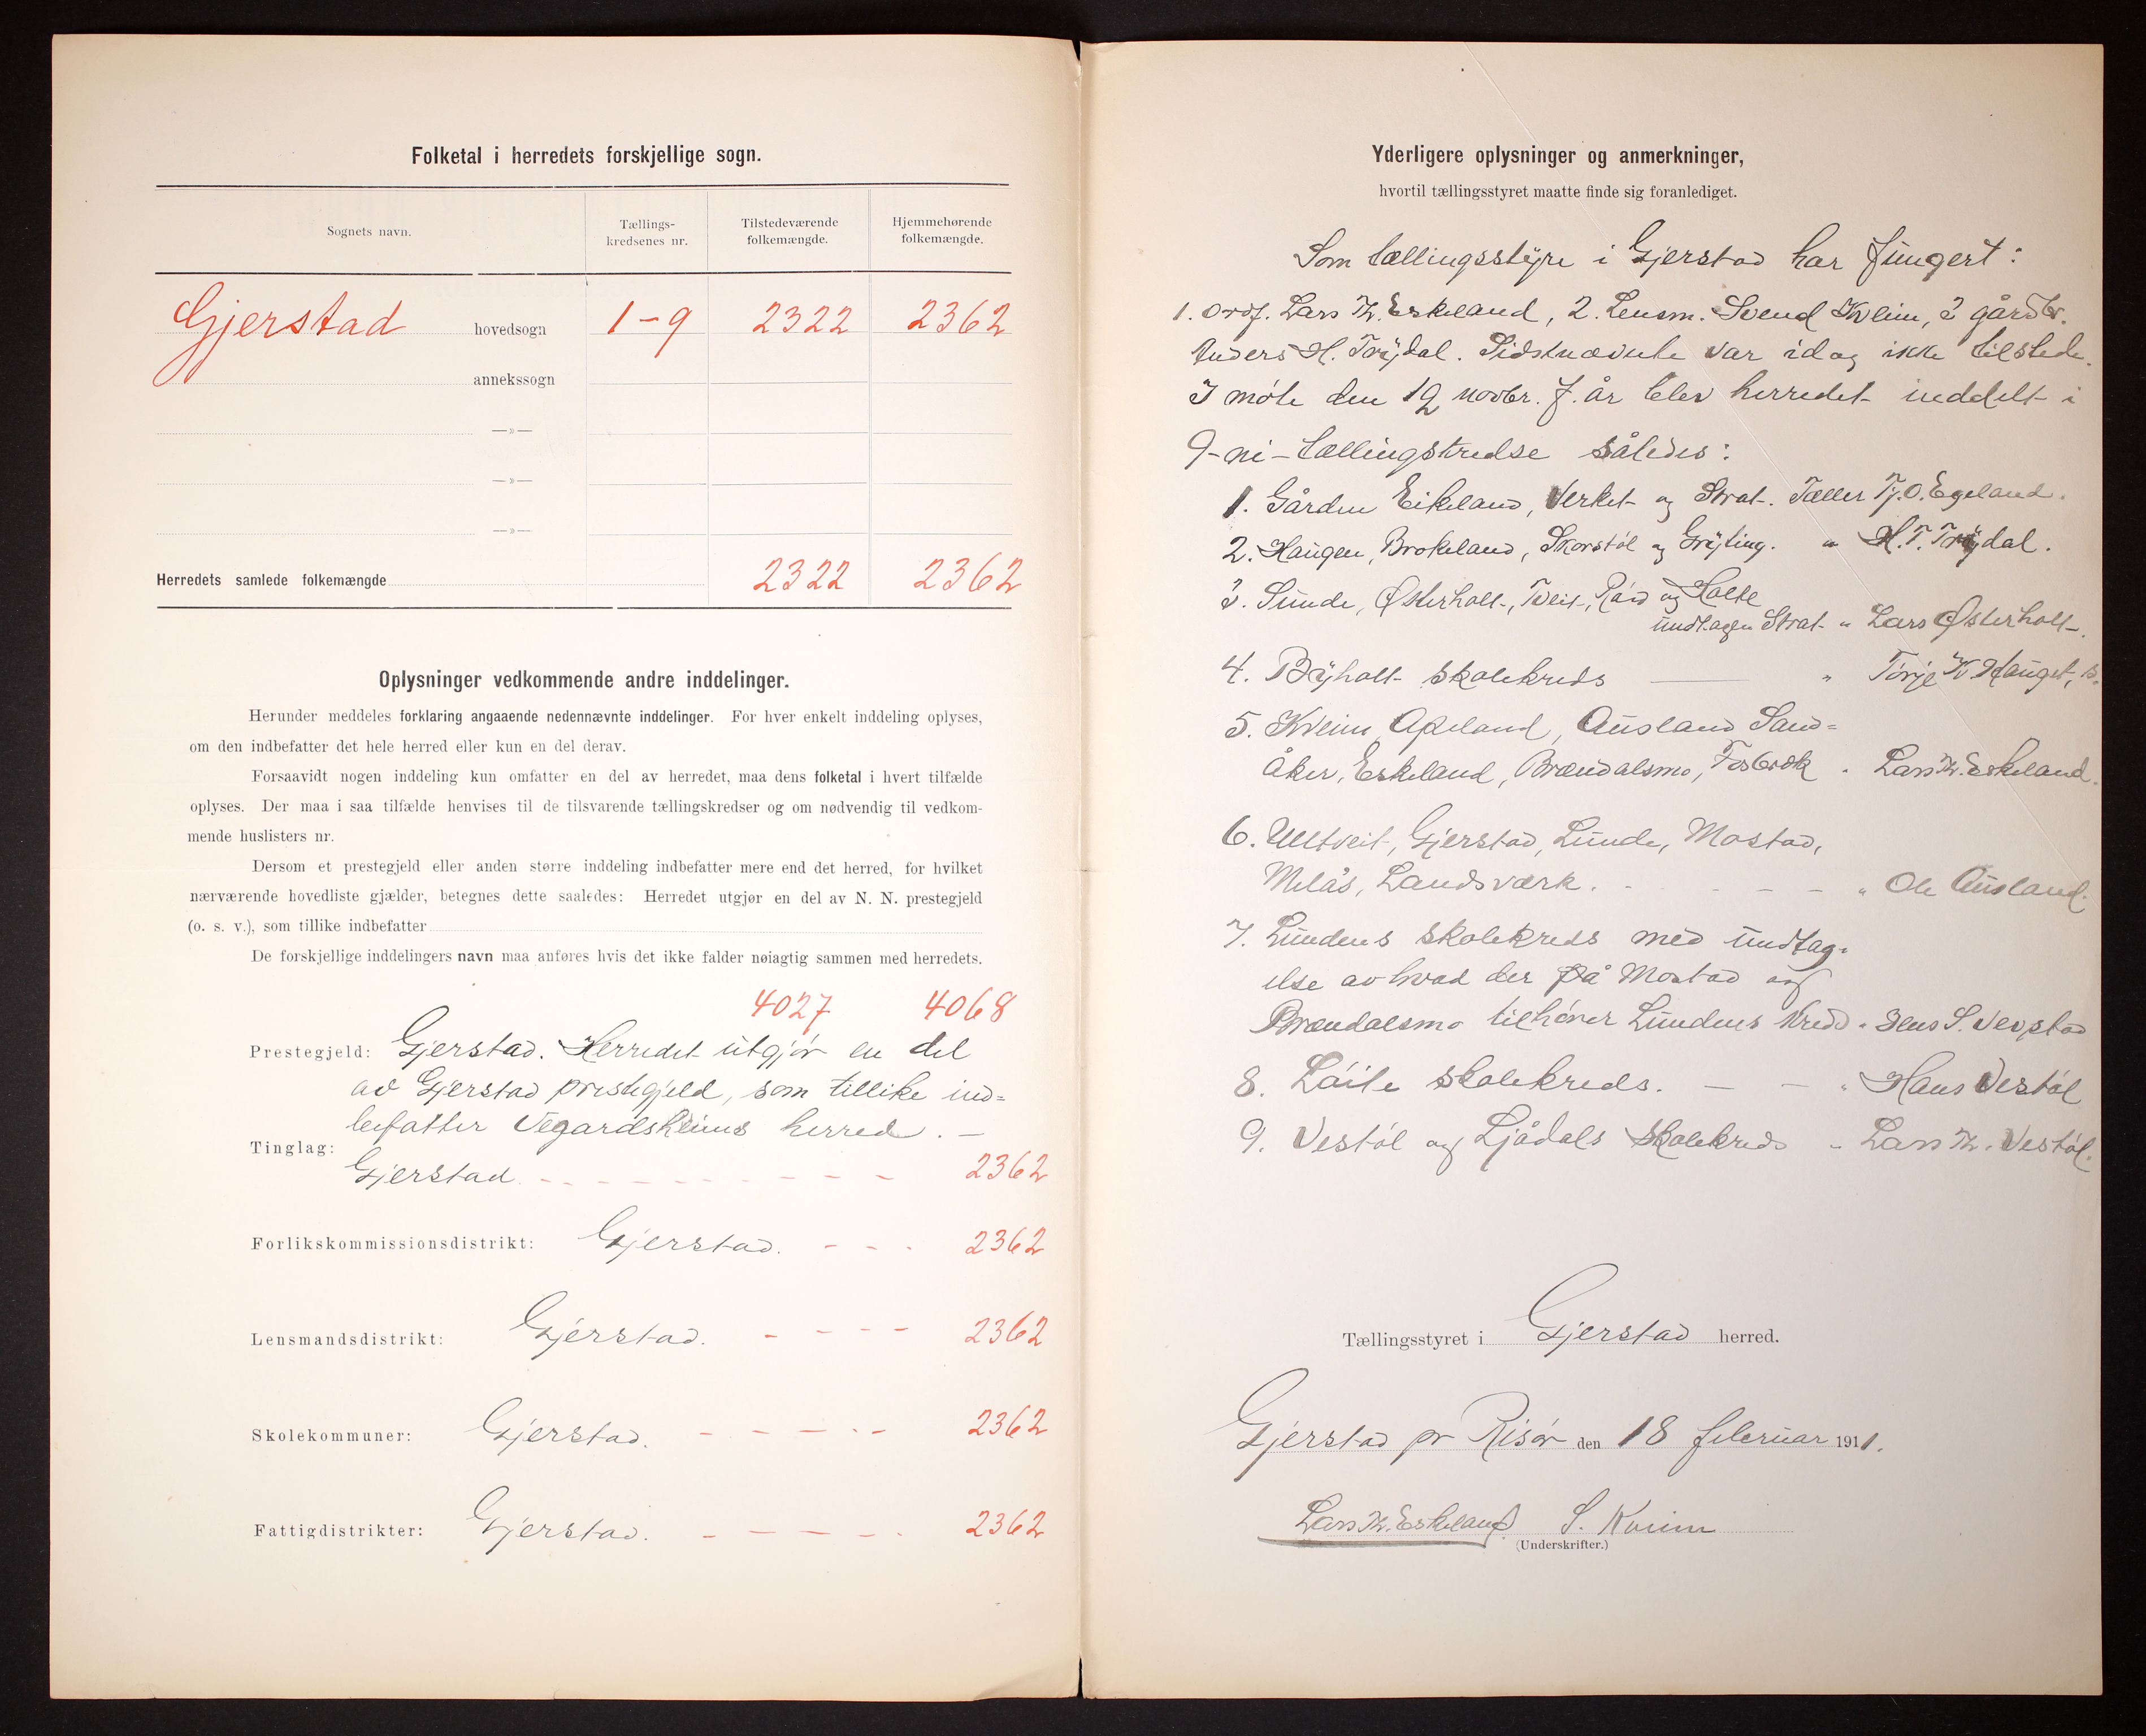 Folketal i herredets forskjellige sogn.
Sognets navn.
Tællings-
kredsenes nr.
Tilstedeværende
folkemængde.
Hjemmehørende
folkemængde.
Gjerstad hovedsogn 1-9 2322 2362
annekssogn
—»—
—»—
—»—
Herredets samlede folkemængde 2322 2362
Oplysninger vedkommende andre inddelinger.
Herunder meddeles forklaring angaaende nedennævnte inddelinger. For hver enkelt inddeling oplyses,
om den indbefatter det hele herred eller kun en del derav.
Forsaavidt nogen inddeling kun omfatter en del av herredet, maa dens folketal i hvert tilfælde
oplyses. Der maa i saa tilfælde henvises til de tilsvarende tællingskredser og om nødvendig til vedkom-
mende huslisters nr.
Dersom et prestegjeld eller anden større inddeling indbefatter mere end det herred, for hvilket
nærværende hovedliste gjælder, betegnes dette saaledes: Herredet utgjør en del av N. N. prestegjeld
(o. s. v.), som tillike indbefatter
De forskjellige inddelingers navn maa anføres hvis det ikke falder nøiagtig sammen med herredets.
4027 4068
Prestegjeld: Gjerstad. Herredet utgjør en del
av Gjerstad prestegjeld, som tillike ind=
befatter Vegardsheims herred. —
Tinglag:
Gjerstad. 2362
Forlikskommissionsdistrikt: Gjerstad. 2362
Lensmandsdistrikt: Gjerstad. 2362
Skolekommuner: Gjerstad. 2362
Fattigdistrikter: Gjerstad. 2362
Yderligere oplysninger og anmerkninger,
hvortil tællingsstyret maatte finde sig foranlediget.
Som tællingsstyre i Gjerstad har fungert:
1. Ordf. Lars Th. Eskeland, 2. Lensm. Svend Kveim, 3 gårdbr.
Anders H. Trydal. Sidstnævnte var idag ikke tilstede.
I møte den 19 novbr. f. år blev herredet inddelt i
9-ni-tællingskredse således:
1. Gården Eikeland, Verket og Strat. Tæller Tj. O. Egeland.
2. Haugen, Brokeland, Skorstøl og Gryting. " H. T. Trydal.
3. Sunde, Østerholt, Tveit, Rød og Holte
undtagen Strat " Lars Østerholt.
4. Byholt skolekreds — " Tørje K Hauget,
5. Kveim, Apeland, Ausland Sand=
åker, Eskeland, Brændalsmo, Fosbæk " Lars Th. Eskeland.
6. Ulltveit, Gjerstad, Lunde, Mostad,
Melås, Landsværk. " Ole Ausland.
7. Lundens skolekreds med undtag-
else av hvad der på Mostad og
Brændalsmo tilhører Lundens kreds " Jens S. Vevstad
8. Løite skolekreds. — — " Hans Vestøl
9. Vestøl og Ljådals skolekreds " Lars Th. Vestøl.
Tællingsstyret i Gjerstad herred.
Gjerstad pr Risør den 18 februar 1911.
Lars Th. Eskeland. S. Kveim
(Underskrifter.)